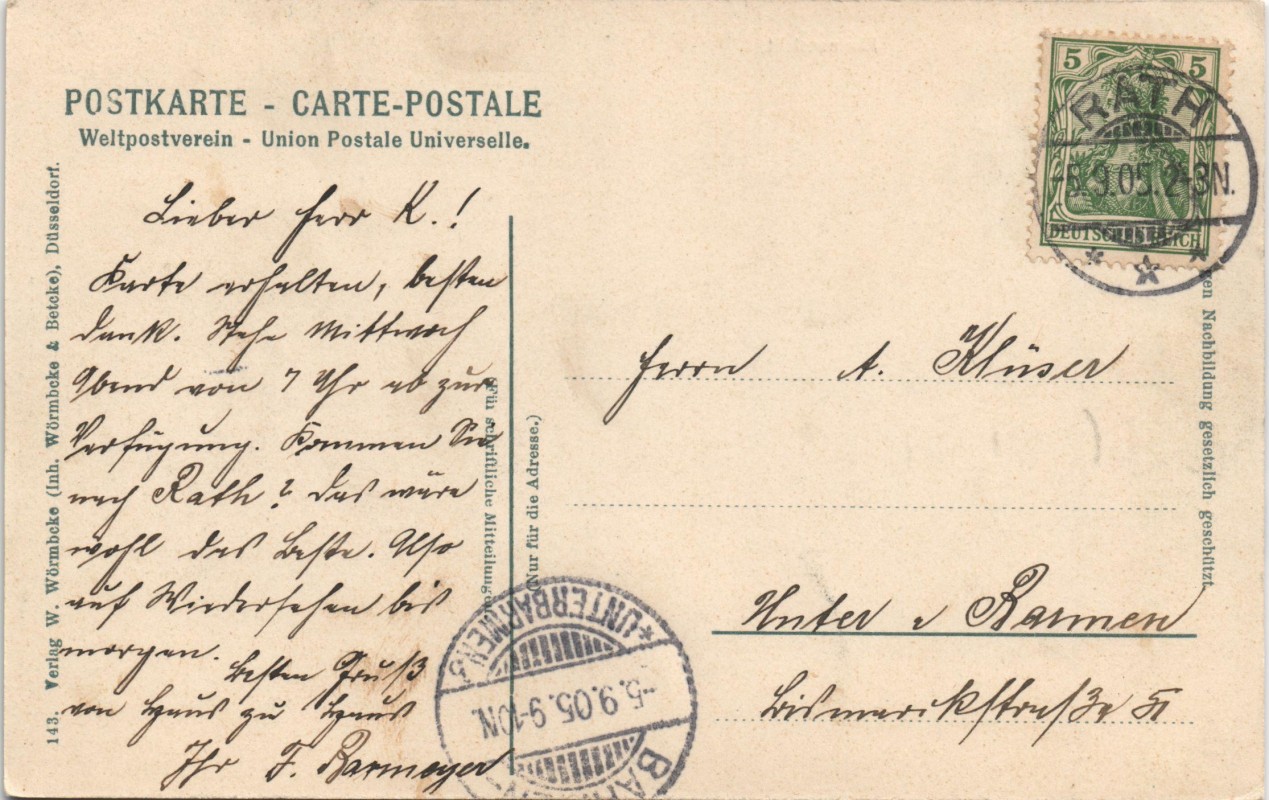 POSTKARTE - CARTE-POSTALE
Weltpostverein - Union Postale Universelle.
143. Verlag W. Wörmbcke (Inh. Wörmbcke & Betcke), Düsseldorf.
Lieber Herr K.!
Karte erhalten, besten
Dank. Stehe Mittwoch
Abend von 7 Uhr ab zur
Verfügung. Kommen Sie
nach Rath? Das wäre
wohl das Beste. Also
auf Wiedersehen bis
morgen.
Besten Gruß
von Haus zu Haus
Ihr F. Barmeyer
Für schriftliche Mitteilungen
(Nur für die Adresse.)
5 5
DEUTSCHES REICH
RATH
-5.9.05.2-3N.
Nachbildung gesetzlich geschützt
Herrn A. Klüser
Unter - Barmen
Bismarckstraße 51
*UNTERBARMEN
-5.9.05.9-10N.
BARMEN